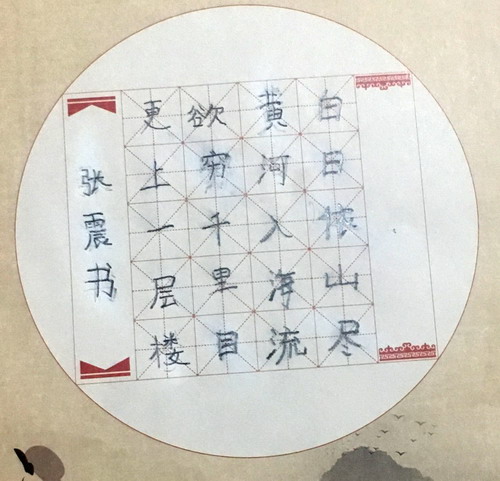 白日依山尽
黄河入海流
欲穷千里目
更上一层楼
张震书